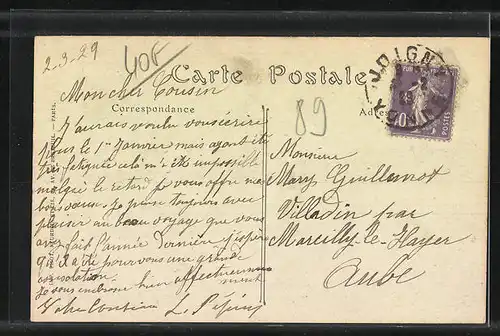 2-3-29
40F
Carte Postale
Correspondance
Adres
JOIGNY
40
89
Mon cher Cousin
J'aurais voulu vous écrire
pour le 1er Janvier mais ayant été
très fatiguée cela m'a été impossible
malgré le retard je vous offre nos
bons vœux. Je pense toujours avec
plaisir au beau voyage que vous
avez fait l'année dernière j'espère
qu'il a été pour vous une grande
consolation.
Je vous embrasse bien affectueusement
Votre Cousine L.
Monsieur
Mary Guillemot
Villadin par
Marcilly-le-Hayer
Aube